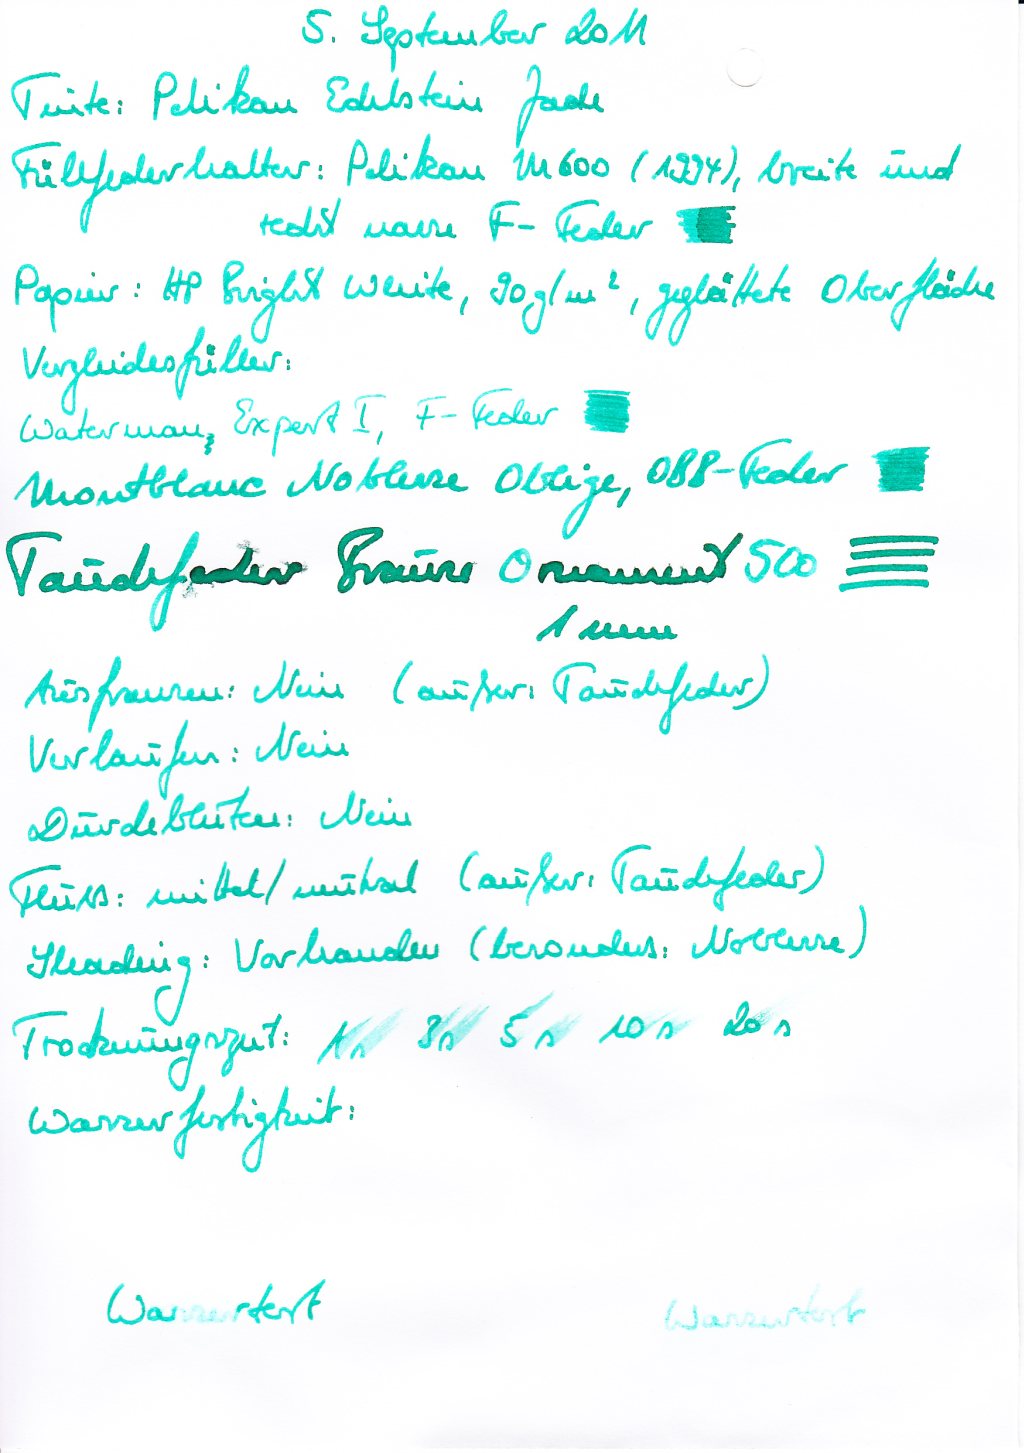 5. September 2011
Tinte: Pelikan Edelstein Jade
Füllfederhalter: Pelikan M600 (1994), breite und
recht nasse F-Feder
Papier: HP Bright White, 90g/m², geglättete Oberfläche
Vergleichsfüller:
Waterman, Expert I, F-Feder
Montblanc Noblesse Oblige, OBB-Feder
Tauchfeder Brause Ornament 500
1 mm
Ausfransen: Nein (außer: Tauchfeder)
Verlaufen: Nein
Durchbluten: Nein
Fluss: mittel/neutral (außer: Tauchfeder)
Shading: Vorhanden (besonders: Noblesse)
Trocknungszeit: 1s 3s 5s 10s 20s
Wasserfestigkeit:
Wassertest Wassertest